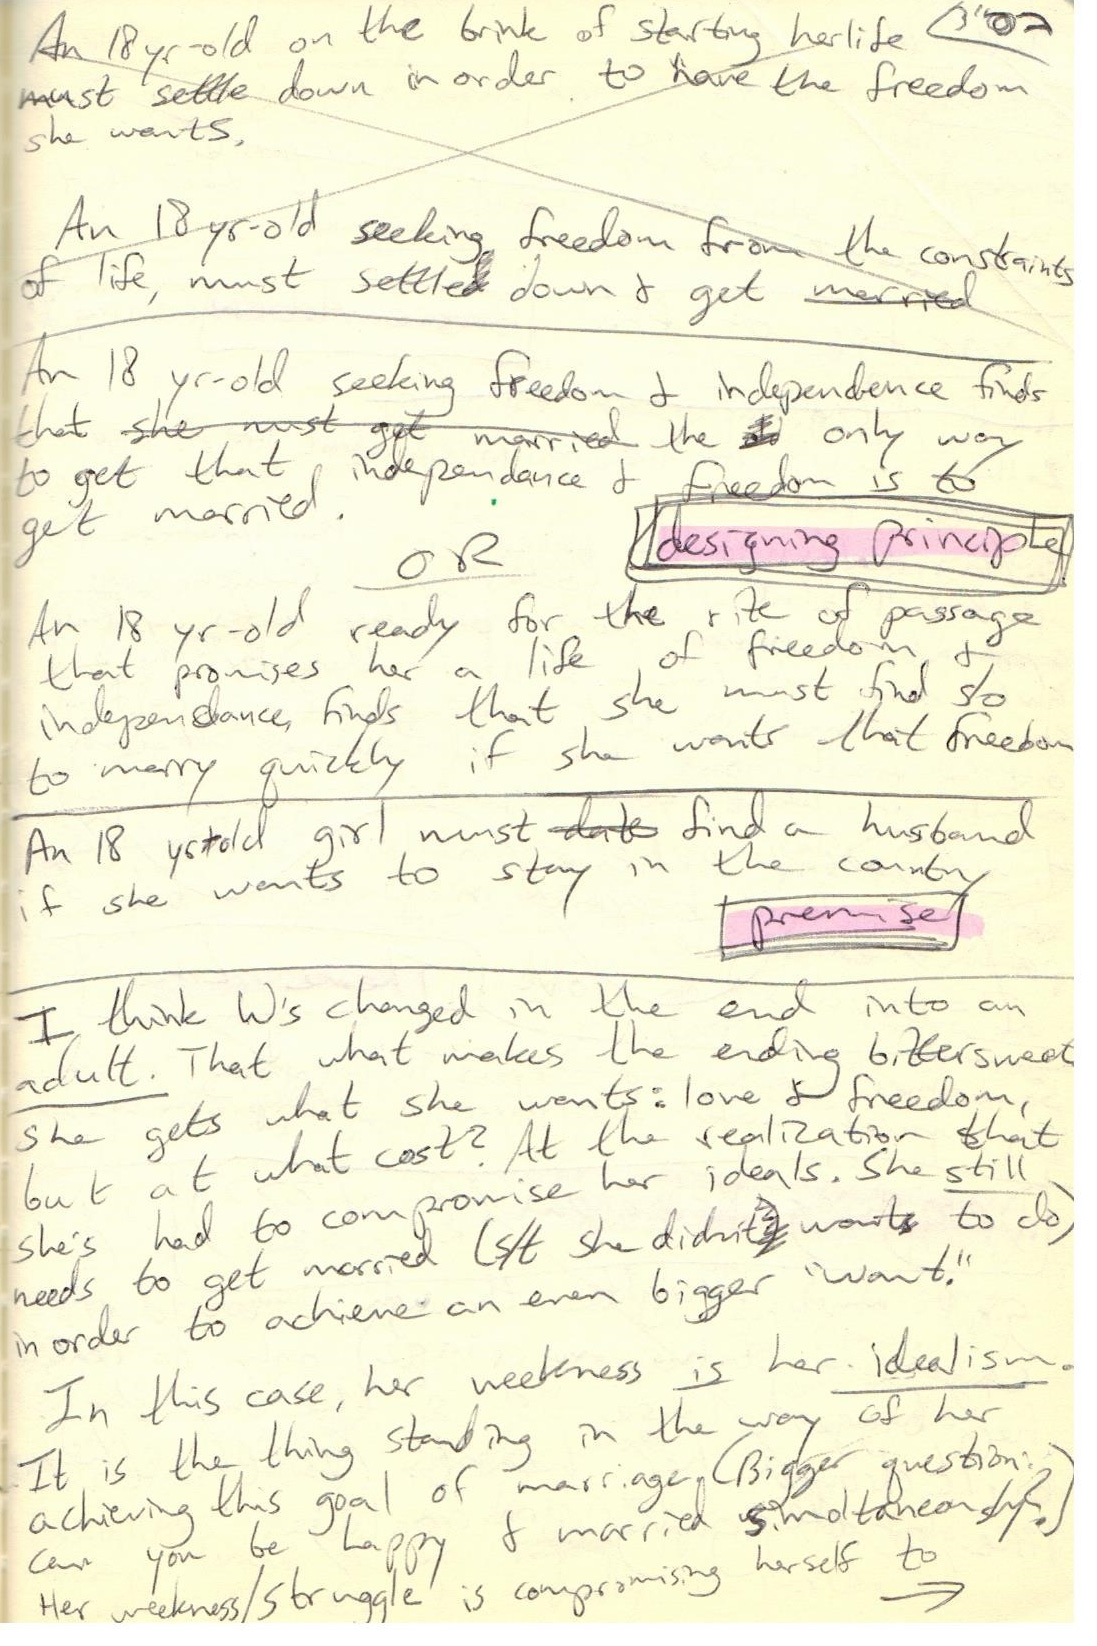 An 18 yr-old on the brink of starting her life
must settle down in order to have the freedom
she wants.
An 18 yr-old seeking freedom from the constraints
of life, must settled down & get married
An 18 yr-old seeking freedom & independence finds
that she must get married the only way
to get that independance & freedom is to
get married.
designing principle
OR
An 18 yr-old ready for the rite of passage
that promises her a life of freedom &
independance, finds that she must find s/o
to marry quickly if she wants that freedom
An 18 yr-old girl must date find a husband
if she wants to stay in the country
premise
I think W's changed in the end into an
adult. That what makes the ending bittersweet
She gets what she wants: love & freedom,
but at what cost? At the realization that
she's had to compromise her ideals. She still
needs to get married (s/t she didn't want to do)
in order to achieve an even bigger "want."
In this case, her weekness is her idealism.
It is the thing standing in the way of her
achieving this goal of marriage. (Bigger question:
can you be happy & married simultaneously?)
Her weekness/struggle is compromising herself to →